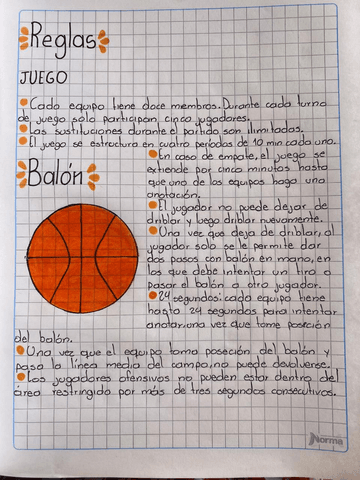 Reglas
JUEGO
Cada equipo tiene doce miembros. Durante cada turno
de juego solo participan cinco jugadores.
Las sustituciones durante el partido son ilimitadas.
El juego se estructura en cuatro períodos de 10 min cada uno.
En caso de empate, el juego se
extiende por cinco minutos hasta
que uno de los equipos haga una
anotación.
Balón
El jugador no puede dejar de
driblar y luego driblar nuevamente.
Una vez que deja de driblar, al
jugador solo se le permite dar
dos pasos con balón en mano, en
los que debe intentar un tiro o
pasar el balón a otro jugador.
24 segundos: cada equipo tiene
hasta 24 segundos para intentar
anotar, una vez que tome poseción
del balón.
Una vez que el equipo toma poseción del balón y
pasa la línea media del campo, no puede devolverse.
Los jugadores ofensivos no pueden estar dentro del
área restringido por más de tres segundos consecutivos.
Norma